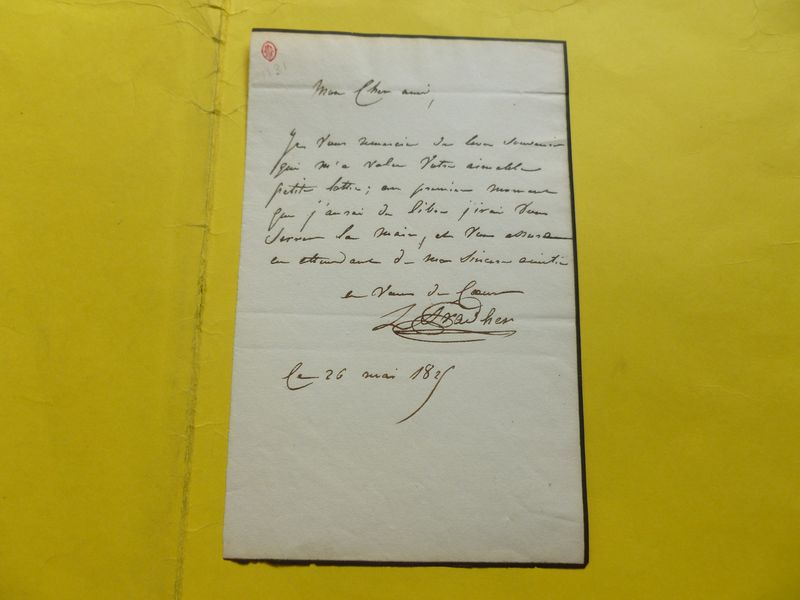 Mon Cher ami,
Je Vous remercie du bon Souvenir
qui m'a valu Votre aimable
petite lettre; au premier moment
que j'aurai de libre j'irai Vous
Serrer la main, et Vous assurer
en attendant de mon Sincere amitié
en Vous de Coeur
Pradher
Le 26 mai 182